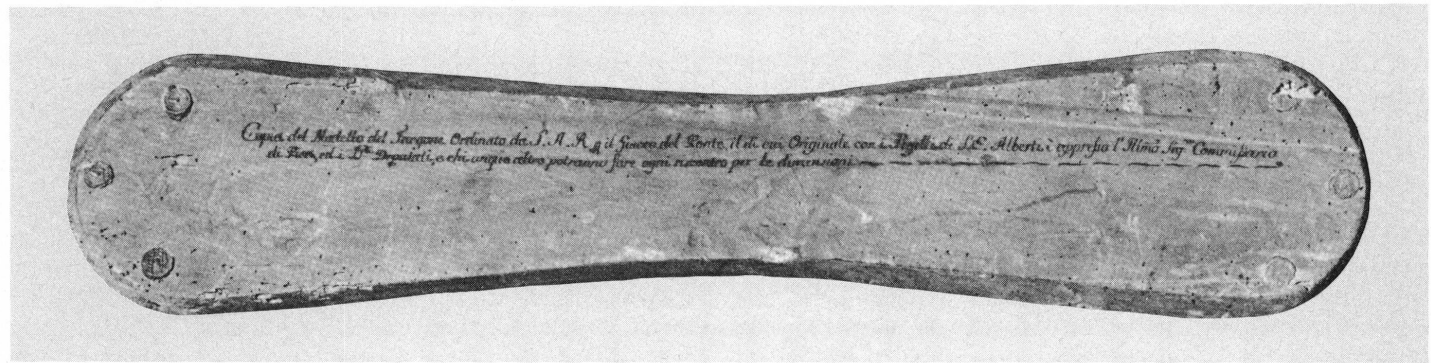 Copia del Modello del Targone Ordinato da S. A. R. p il Giuoco del Ponte, il di cui Originale con i Sigilli di S.E. Alberti è appresso l'Illmo Sigre Commissario
di Pisa, ed i Deputati, e chi unque altro potranno fare ogni riscontro per le dimensioni